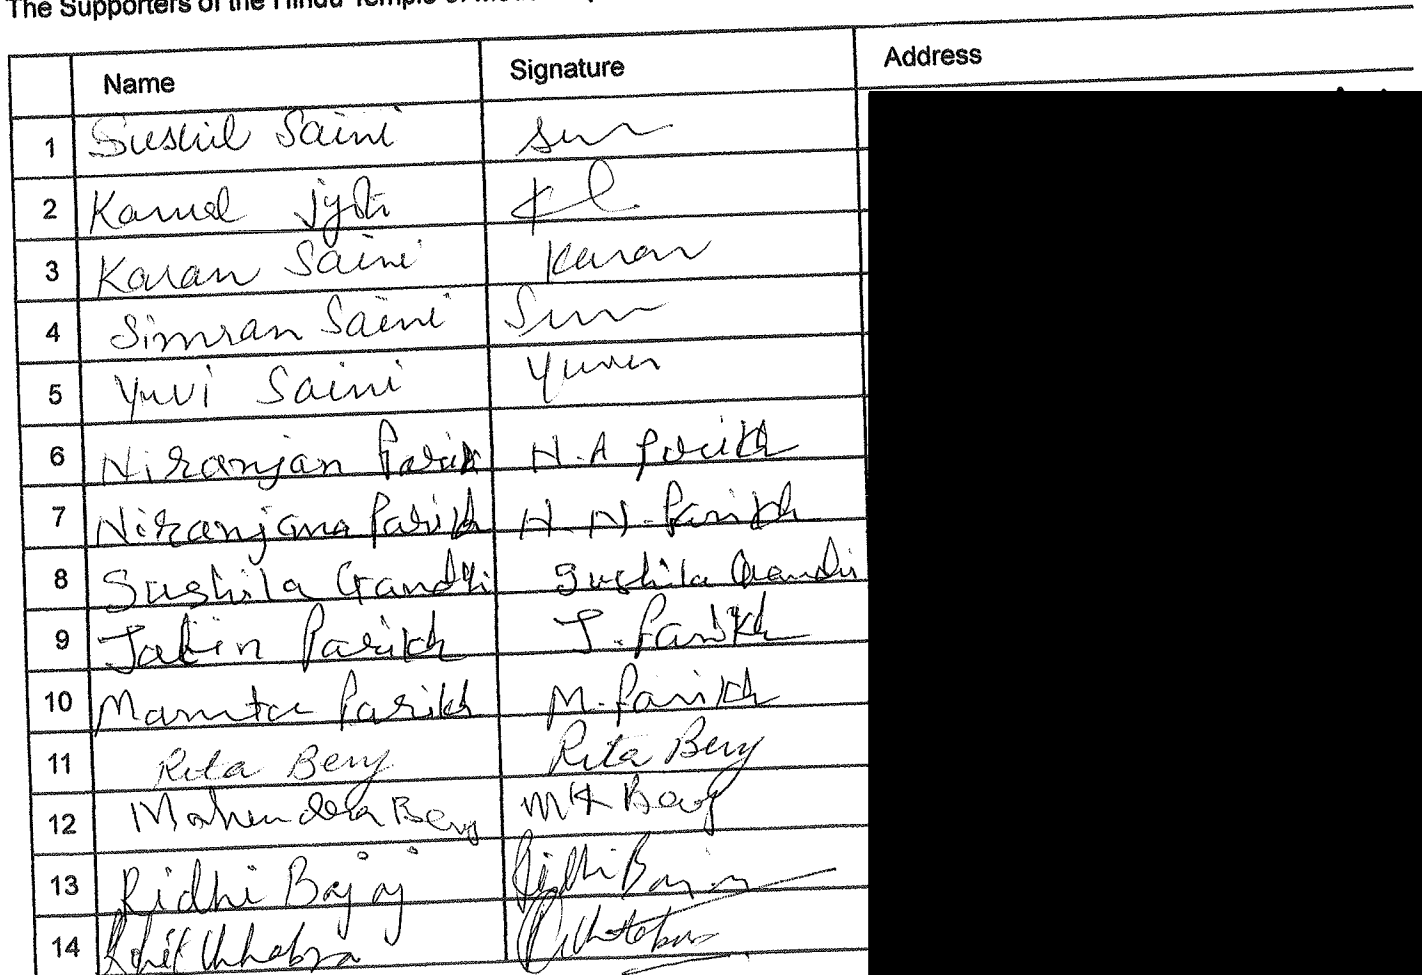 The Supporters of the Hindu Temple of
Name Signature Address
1 Sushil Saini
2 Kamal Jyoti
3 Karan Saini Karan
4 Simran Saini
5 Yuvi Saini
6 Niranjan Parikh N.A Parikh
7 Niranjana Parikh N. N. Parikh
8 Sushila Gandhi Sushila Gandhi
9 Parikh J. Parikh
10 Mamta Parikh M. Parikh
11 Rita Bery Rita Bery
12 Mahendra Bery MK Bery
13 Ridhi Bajaj Ridhi Bajaj
14 Rohit Chhabra